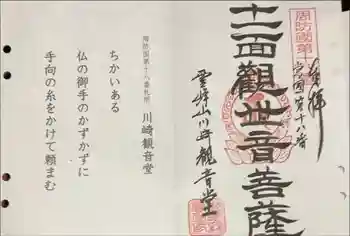 周防國第
奉拝
當國第十八番
十一面觀世音菩薩
川崎観音堂
周防国第十八番札所　川崎観音堂
ちかいある
仏の御手のかずかずに
手向の糸をかけて頼まむ